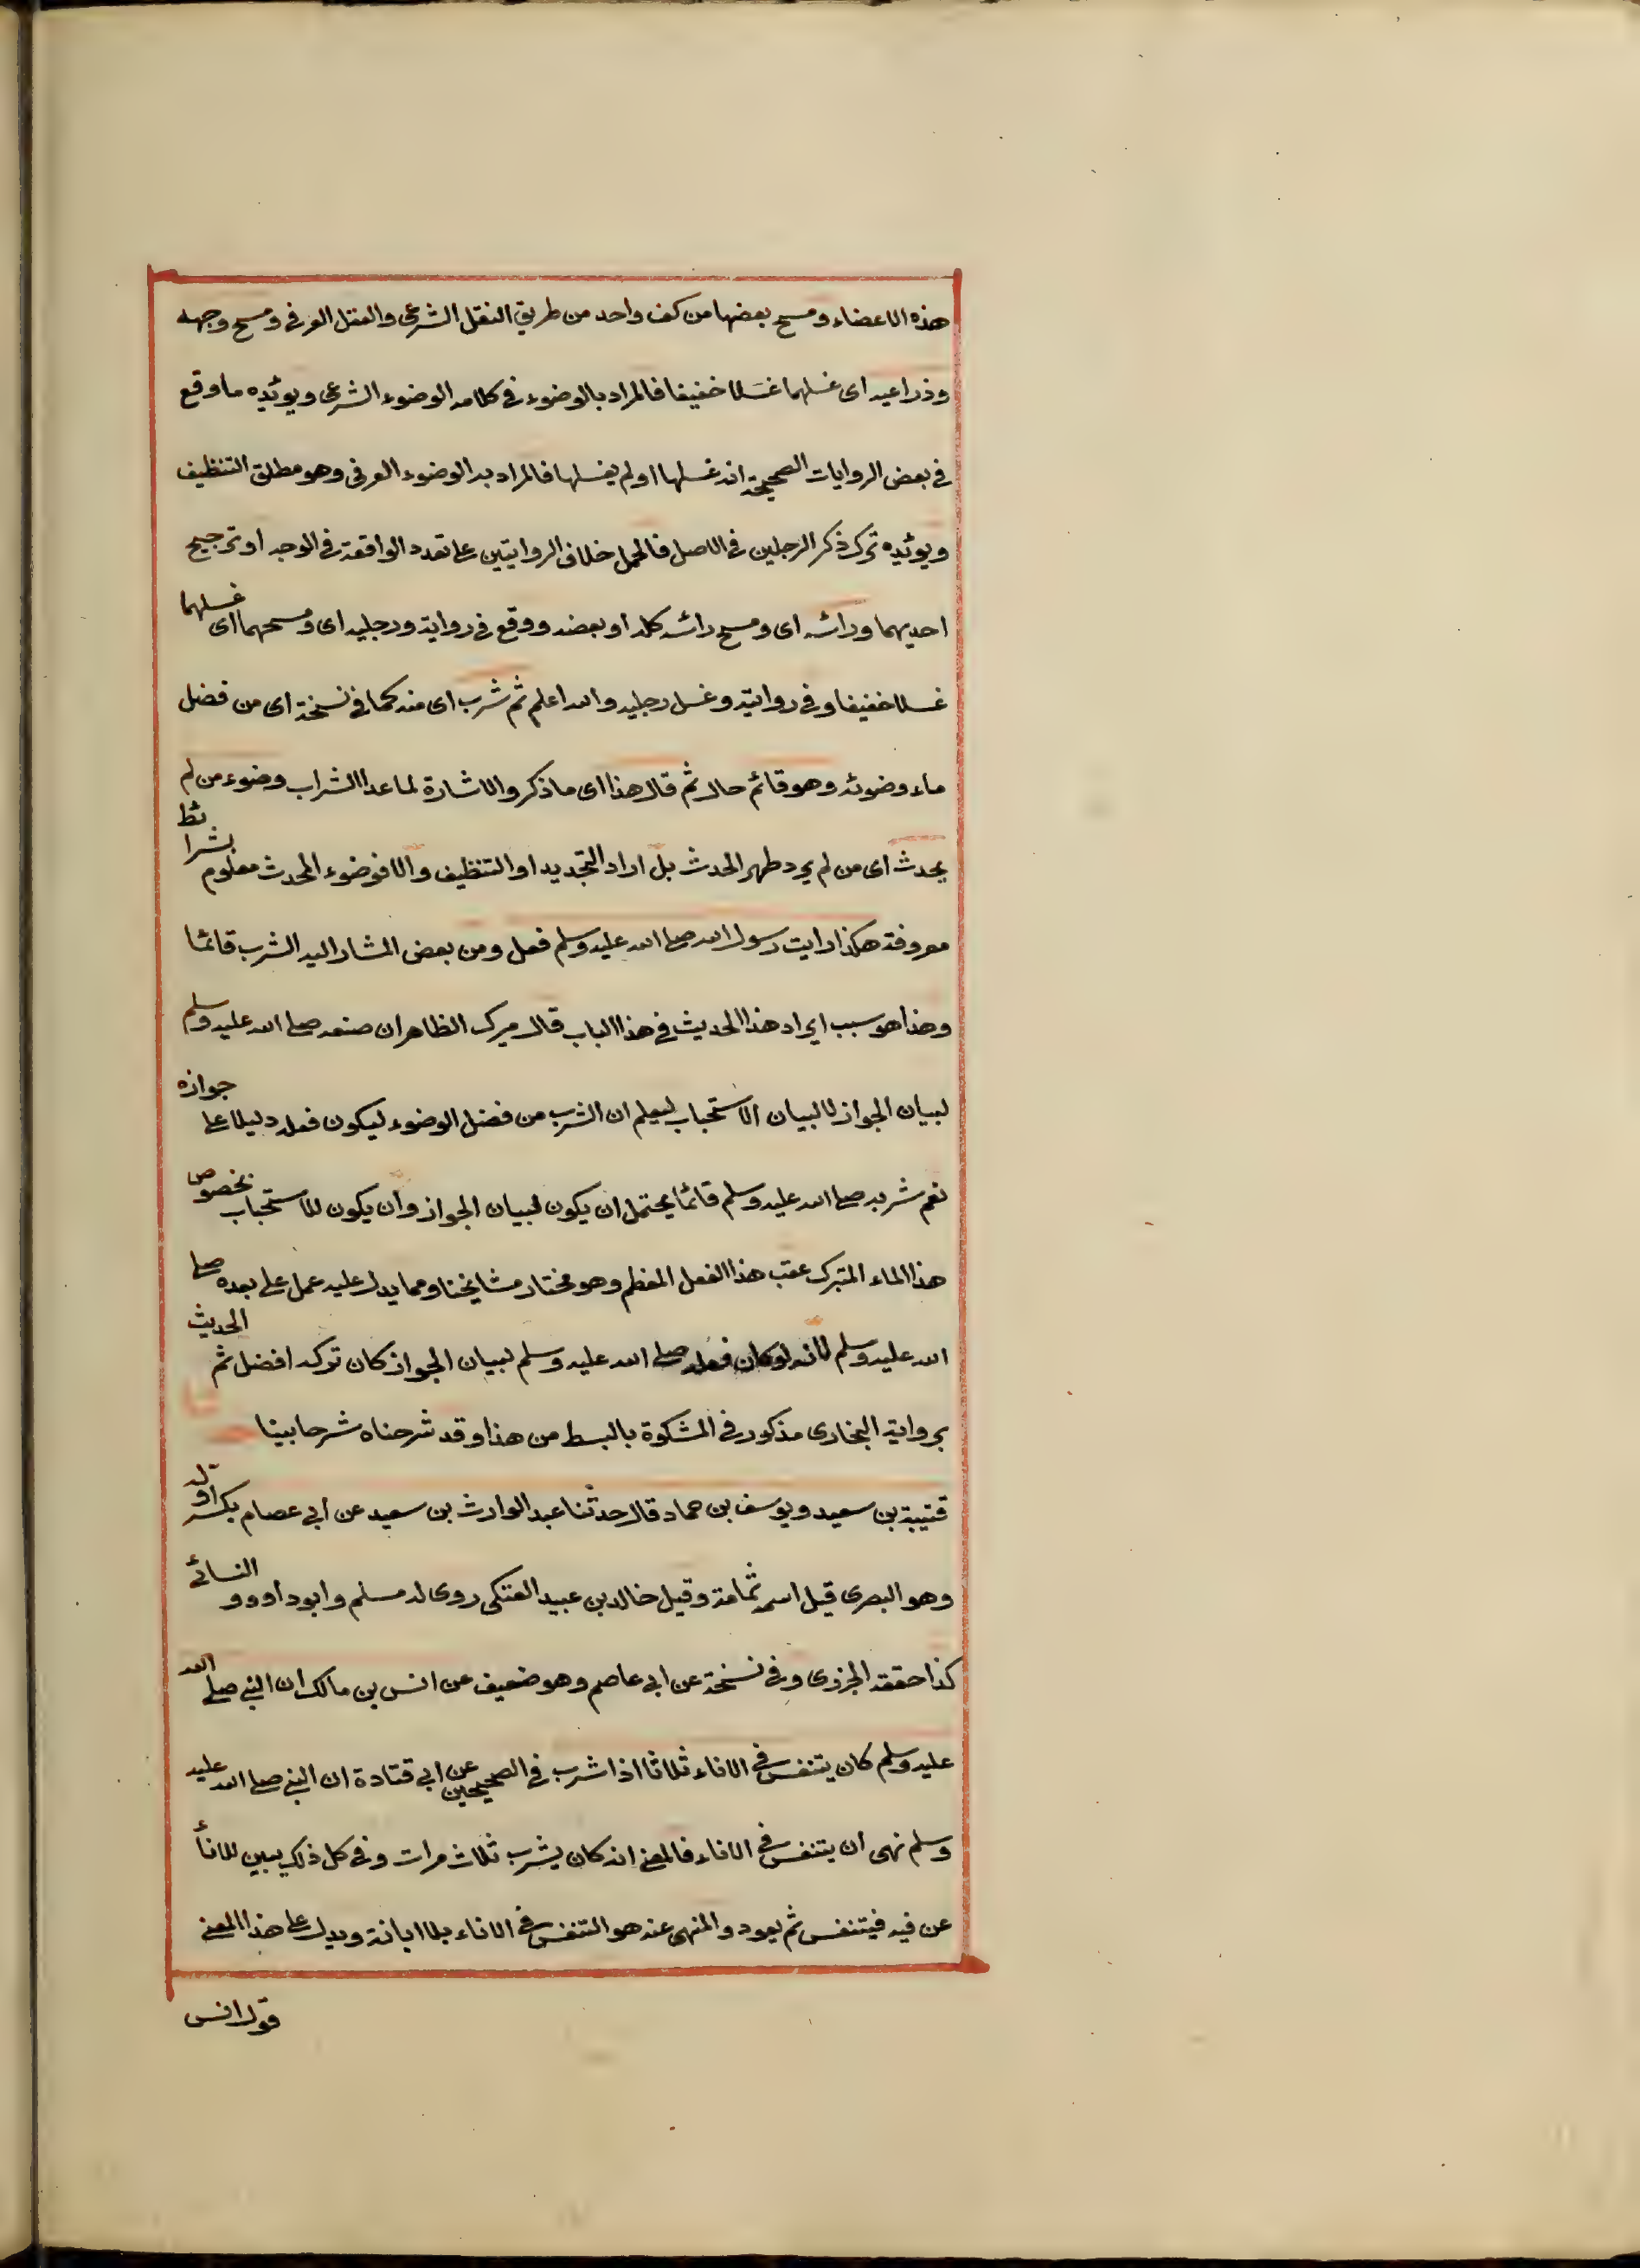 هذه الاعضاء ومسح بعضها من كف واحد من طريق النقل الشرعى والعقل العرفى ومسح وجهه
وذراعيه اى غسلهما غسلا خفيفا فالمراد بالوضوء فى كلامه الوضوء الشرعى ويوئيده ما وقع
فى بعض الروايات الصحيحة انه غسلها او لم يغسلها فالمراد به الوضوء العرفى وهو مطلق التنظيف
ويوئيده ترك ذكر الرجلين فى الاصل فالحمل خلاف الروايتين على تعدد الواقعة فى الوجه او ترجيح
احديهما وراسه اى ومسح راسه كله او بعضه ووقع فى رواية ورجليه اى ومسحهما اى غسلهما
غسلا خفيفا وفى رواية وغسل رجليه والله اعلم ثم شرب اى منه كما فى نسخة اى من فضل
ماء وضوئه وهو قائم حال ثم قال هذا اى ما ذكر والاشارة لما عدا الشراب وضوء من لم
يحدث اى من لم يرد طهر الحدث بل اراد التجديد او التنظيف والا فوضوء المحدث معلوم بشرائط
معروفة هكذا رايت رسول الله صلى الله عليه وسلم فعل ومن بعض المشار اليه الشرب قائما
وهذا هو سبب ايراد هذا الحديث فى هذا الباب قال ميرك الظاهر ان صنعه صلى الله عليه وسلم
لبيان الجواز لا لبيان الاستحباب ليعلم ان الشرب من فضل الوضوء ليكون فعله دليلا على جوازه
نعم شربه صلى الله عليه وسلم قائما يحتمل ان يكون لبيان الجواز وان يكون للاستحباب بخصوص
هذا الماء المتبرك عقب هذا الفعل المعظم وهو مختار مشايخنا ومما يدل عليه عمل على بعده صلى
الله عليه وسلم لانه لو كان فعله صلى الله عليه وسلم لبيان الجواز كان تركه افضل ثم الحديث
برواية البخارى مذكور فى المشكوة بالبسط من هذا وقد شرحناه شرحا بينا
قتيبة بن سعيد ويوسف بن حماد قال حدثنا عبد الوارث بن سعيد عن ابى عصام بكسر اوله
وهو البصرى قيل اسمه ثمامة وقيل خالد بن عبيد العتكى روى له مسلم وابو داوو و النسائى
كذا حققه الجزرى وفى نسخة عن ابى عاصم وهو ضعيف عن انس بن مالك ان النبى صلى الله
عليه وسلم كان يتنفس فى الاناء ثلاثا اذا شرب فى الصحيحين عن ابى قتادة ان النبى صلى الله عليه
وسلم نهى ان يتنفس فى الاناء فالمعنى انه كان يشرب ثلاث مرات وفى كل ذلك يبين للاناء
عن فيه فيتنفس ثم يعود والمنهى عنه هو التنفس فى الاناء بلا ابانة ويدل على هذا المعنى
قول انس